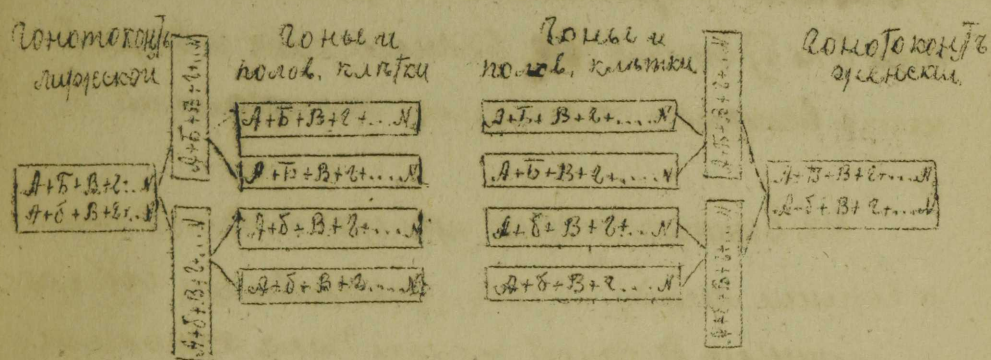 Гонотоконтъ
мужской
Гоны и
полов. клѣтки
Гоны и
полов. клѣтки
Гонотоконтъ
женскій
А+Б+В+г+...N
А+б+В+г+...N
А+Б+В+г+...N
А+б+В+г+...N
А+Б+В+г+....N
А+Б+В+г+....N
А+б+В+г+....N
А+б+В+г....N
А+Б+В+г+....N
А+Б+В+г+....N
А+б+В+г+...N
А+б+В+г...N
А+Б+В+г+...N
А+б+В+г+...N
А+Б+В+г+...N
А+б+В+г+...N